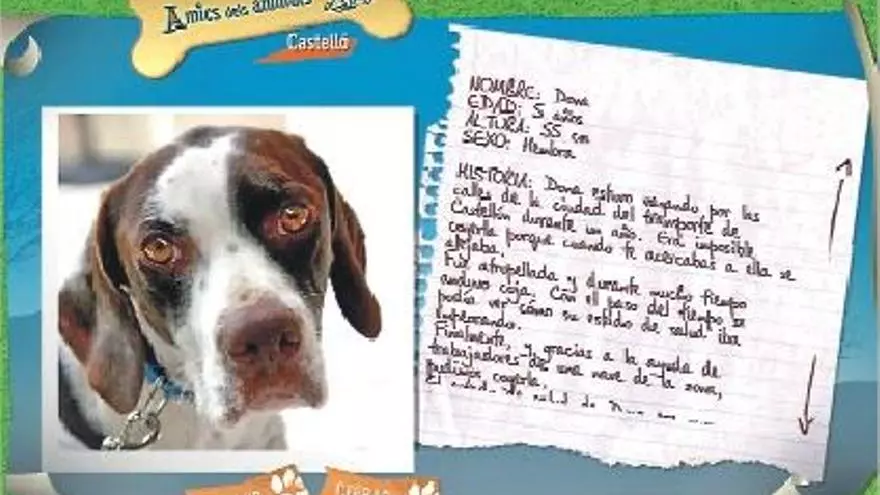 Amics dels animals
Castelló
NOMBRE: Dona
EDAD: 5 años
ALTURA: 55 cm
SEXO: Hembra
HISTORIA: Dona estuvo vagando por las
calles de la ciudad del transporte de
Castellón durante un año. Era imposible
cogerla porque cuando te acercabas a ella se
alejaba.
Fue atropellada y durante mucho tiempo
anduvo coja. Con el paso del tiempo se
podía ver cómo su estado de salud iba
empeorando.
Finalmente, y gracias a la ayuda de
trabajadores de una nave de la zona,
pudimos cogerla.
El